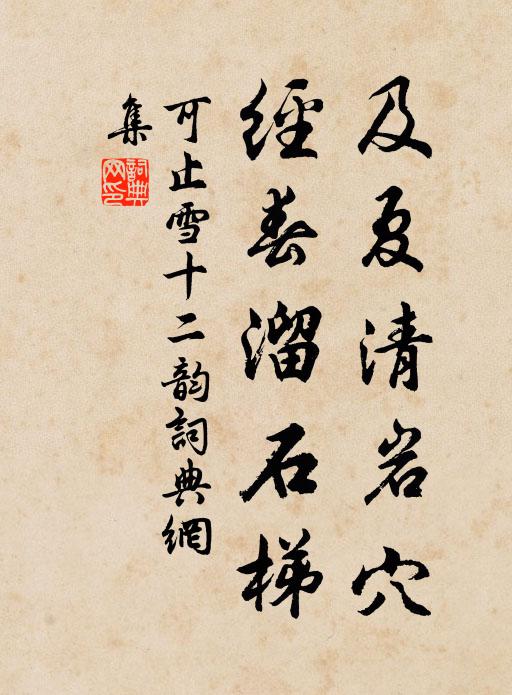 及夏清岩穴
經春溜石梯
可止雪十二韵詞典網
集
詞典
网印